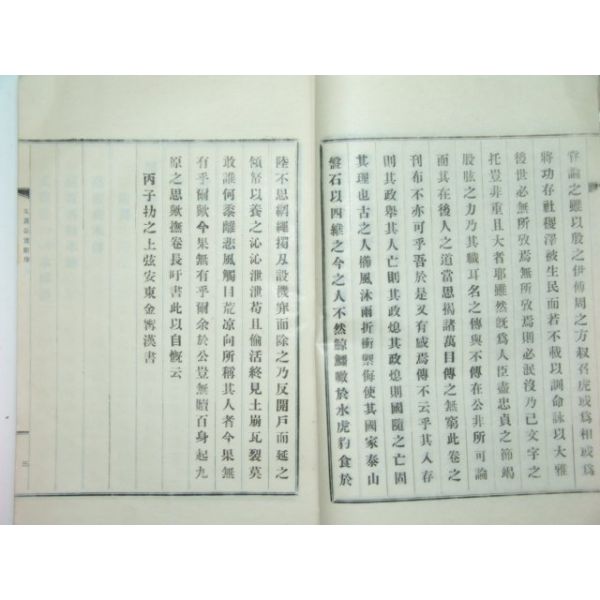 嘗論之雖以殷之伊傅周之方叔召虎或爲相或爲
將功存社稷澤被生民而若不載以訓命詠以大雅
後世必無所攷焉無所攷焉則必泯沒乃已文字之
托豈非重且大者耶雖然旣爲人臣盡忠貞之節竭
股肱之力乃其職耳名之傳與不傳在公非所可論
而其在後人之道當思揭諸萬目傳之無窮此卷之
刊布不亦可乎吾於是又有感焉傳不云乎其人存
則其政擧其人亡則其政熄其政熄則國隨之亡固
其理也古之人櫛風沐雨折衝禦侮使其國家泰山
盤石以四維之今之人不然鯨鱷噉於水虎豹食於
陸不思網繩獨刄設機穽而除之乃反開戶而延之
傾帑以養之沁沁泄泄苟且偸活終見土崩瓦裂莫
敢誰何黍離悲風觸目荒凉向所稱其人者今果無
有乎爾歟今果無有乎爾余於公豈無贖百身起九
原之思歟撫卷長吁書此以自慨云
丙子抐之上弦安東金寗漢書
三